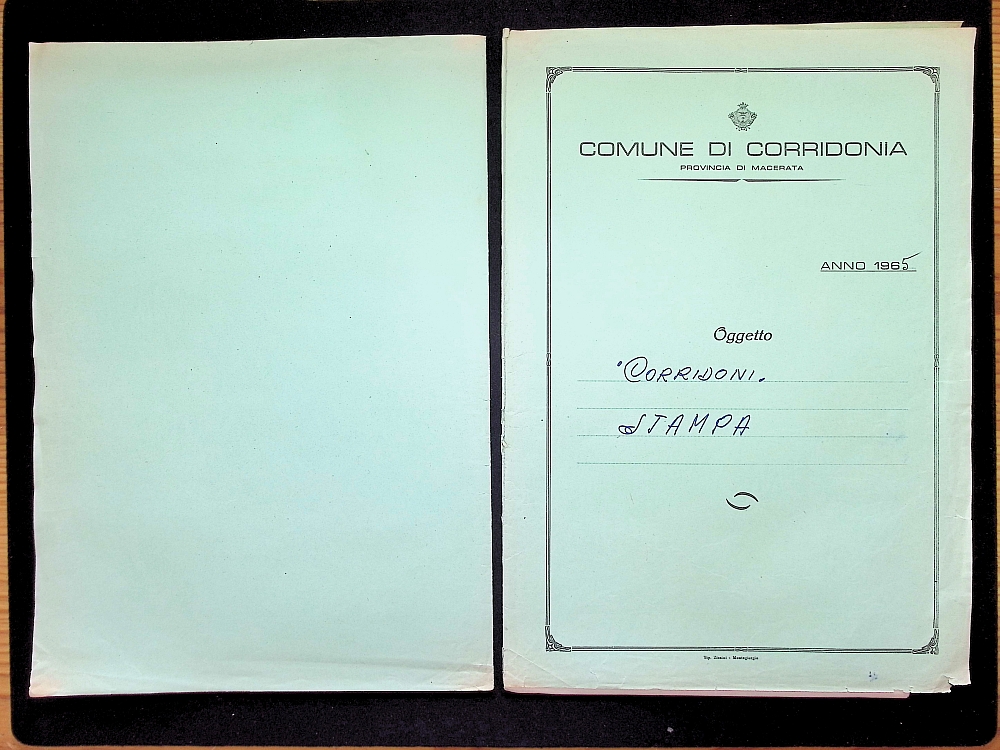 COMUNE DI CORRIDONIA
PROVINCIA DI MACERATA
ANNO 1965
Oggetto
"CORRIDONI"
STAMPA
Tip. Zizzini - Montegiorgio